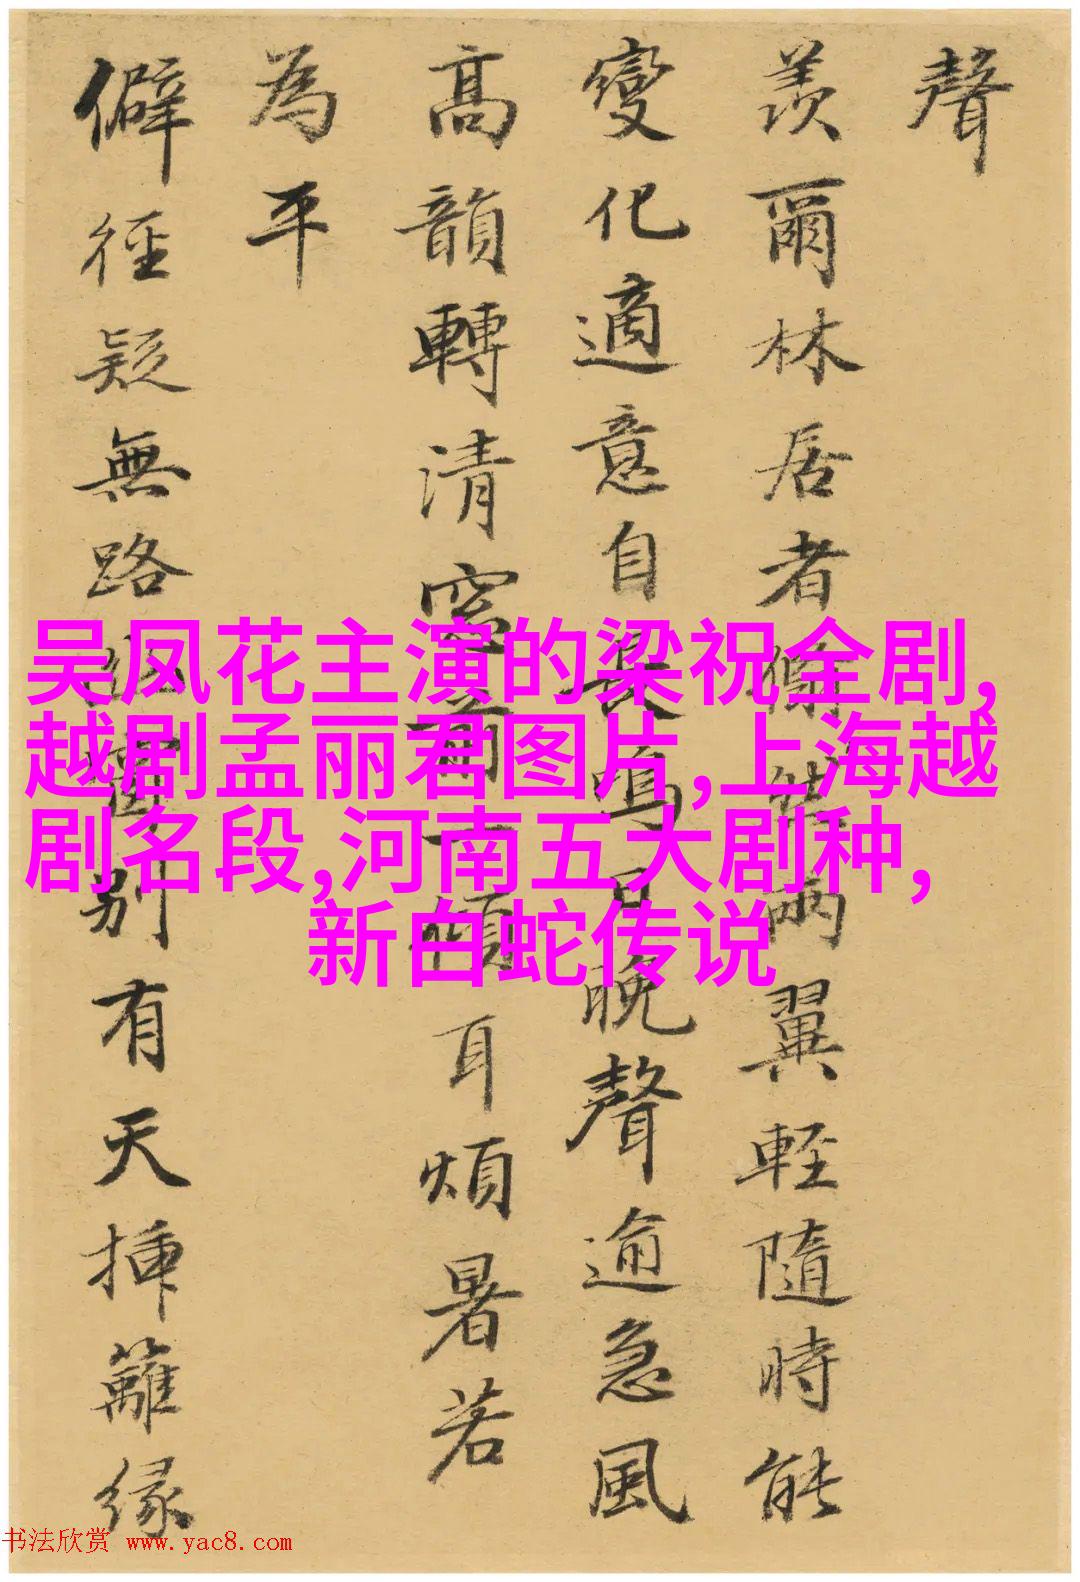 聲
羨爾林居者翛然兩翼輕隨時能
變化適意自長鳴日晚聲逾急風
高韻轉清窓前一傾耳煩暑若
為平
僻徑疑無路別有天插籬緣
吴凤花主演的梁祝全剧,
越剧孟丽君图片,上海越
剧名段,河南五大剧种,
新白蛇传说
书法欣赏 www.yac8.com